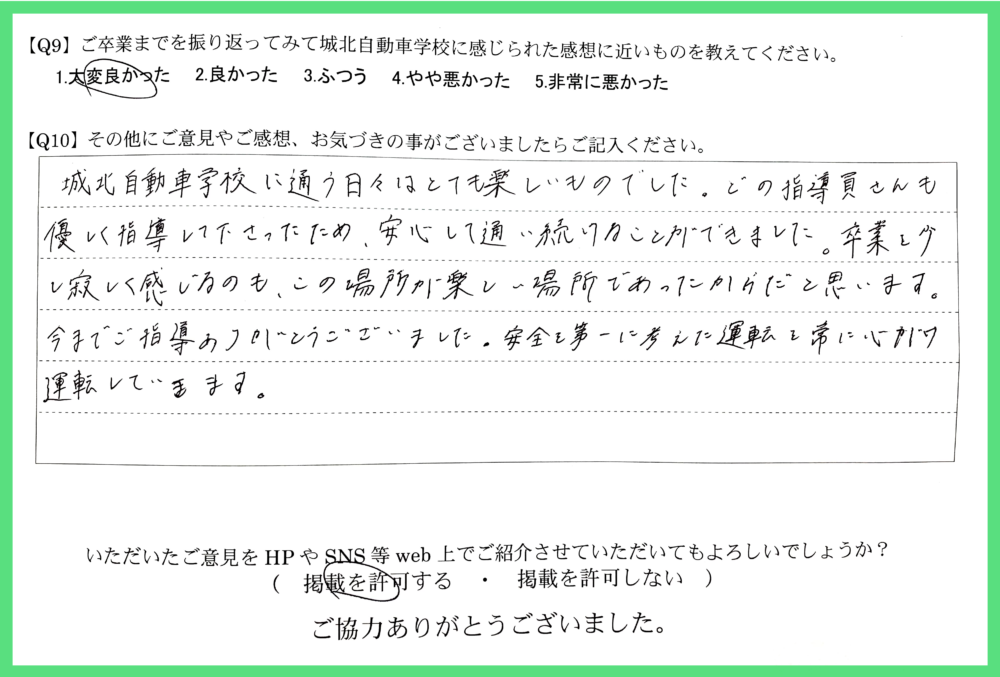 【Q9】ご卒業までを振り返ってみて城北自動車学校に感じられた感想に近いものを教えてください。
1.大変良かった 2.良かった 3.ふつう 4.やや悪かった 5.非常に悪かった
【Q10】その他にご意見やご感想、お気づきの事がございましたらご記入ください。
城北自動車学校に通う日々はとても楽しいものでした。どの指導員さんも
優しく指導して下さったため、安心して通い続けることができました。卒業を少
し寂しく感じるのも、この場所が楽しい場所であったからだと思います。
今までご指導ありがとうございました。安全を第一に考えた運転を常に心がけ
運転していきます。
いただいたご意見をHPやSNS等web上でご紹介させていただいてもよろしいでしょうか？
( 掲載を許可する ・ 掲載を許可しない )
ご協力ありがとうございました。